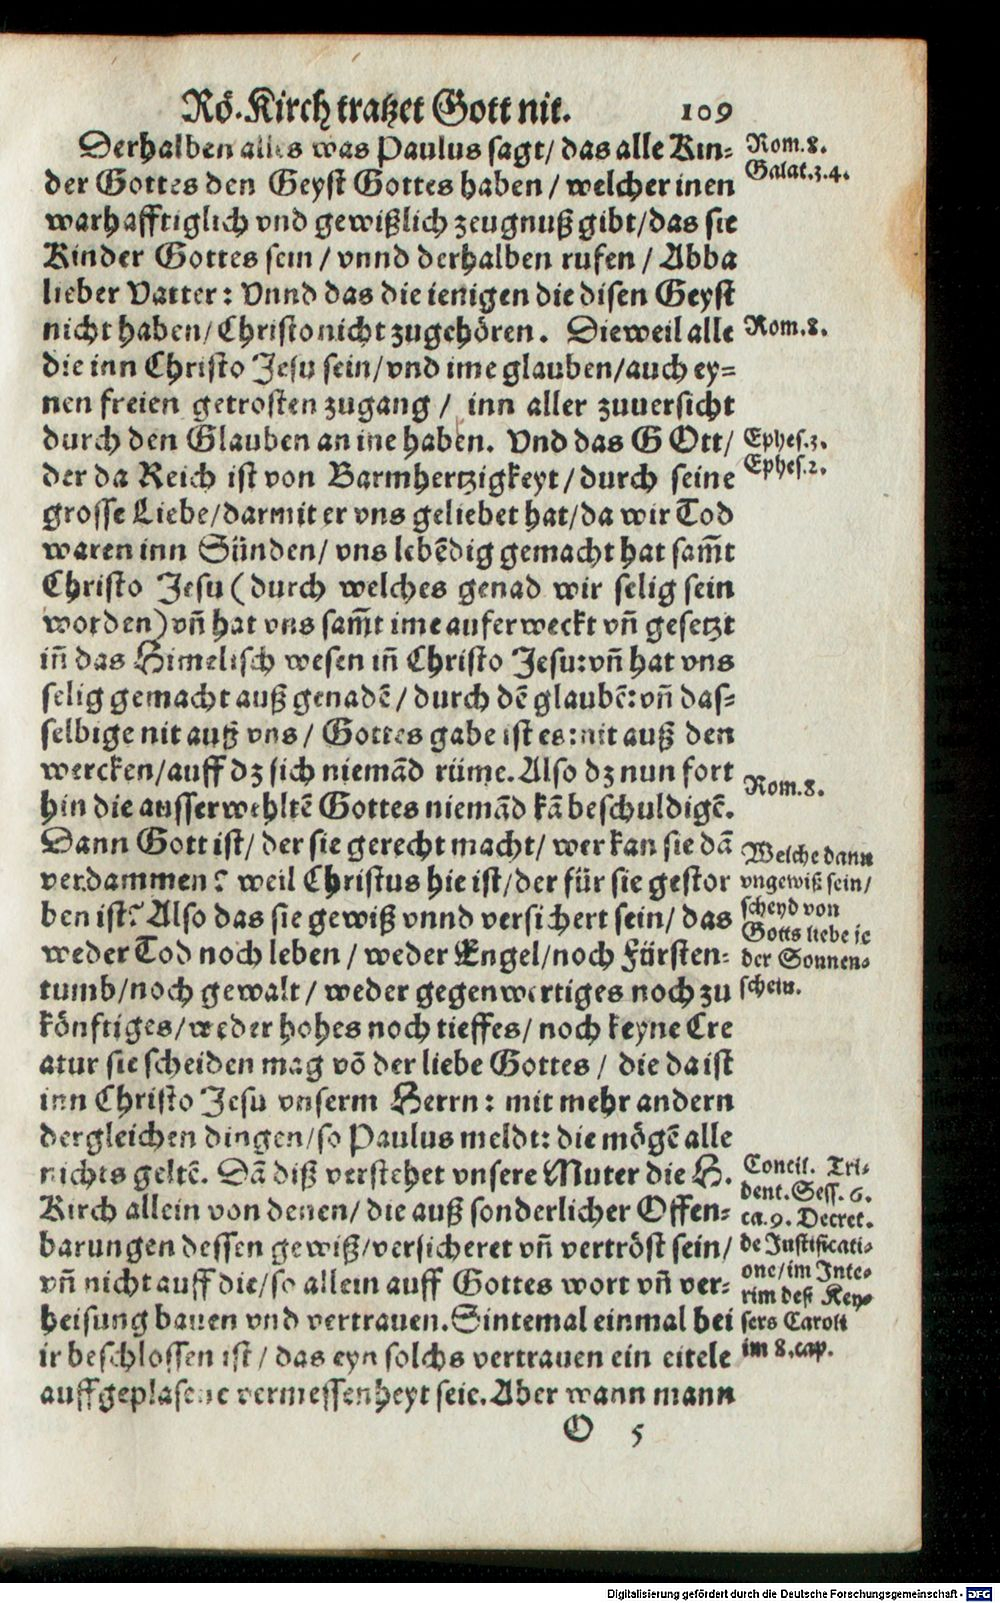 Rö. Kirch tratzet Gott nit. 109
Derhalben alles was Paulus sagt/ das alle Kin-
der Gottes den Geyst Gottes haben / welcher inen
warhafftiglich vnd gewißlich zeugnuß gibt/das sie
Kinder Gottes sein / vnnd derhalben rufen / Abba
lieber Vatter: Vnnd das die ienigen die disen Geyst
nicht haben/ Christo nicht zugehören. Dieweil alle
die inn Christo Jesu sein/ vnd ime glauben/auch ey-
nen freien getrosten zugang / inn aller zuuersicht
durch den Glauben an ine haben. Vnd das GOtt/
der da Reich ist von Barmhertzigkeyt / durch seine
grosse Liebe/darmit er vns geliebet hat/da wir Tod
waren inn Sünden/ vns lebēdig gemacht hat sam̄t
Christo Jesu (durch welches genad wir selig sein
worden) vn̄ hat vns sam̄t ime auferweckt vn̄ gesetzt
in̄ das Himelisch wesen in̄ Christo Jesu: vn̄ hat vns
selig gemacht auß genadē / durch dē glaubē: vn̄ das-
selbige nit auß vns / Gottes gabe ist es: nit auß den
wercken/auff dz sich niemād rüme. Also dz nun fort
hin die ausserwehltē Gottes niemād kā beschuldigē.
Dann Gott ist/ der sie gerecht macht/ wer kan sie dā
verdammen? weil Christus hie ist/der für sie gestor
ben ist? Also das sie gewiß vnnd versichert sein/ das
weder Tod noch leben / weder Engel/noch Fürsten-
tumb/noch gewalt / weder gegenwertiges noch zu
könftiges/weder hohes noch tieffes/ noch keyne Cre
atur sie scheiden mag vō der liebe Gottes / die da ist
inn Christo Jesu vnserm Herrn: mit mehr andern
dergleichen dingen/so Paulus meldt: die mögē alle
nichts geltē. Dā diß verstehet vnsere Muter die H.
Kirch allein von denen/ die auß sonderlicher Offen-
barungen dessen gewiß/versicheret vn̄ vertröst sein/
vn̄ nicht auff die/so allein auff Gottes wort vn̄ ver-
heisung bauen vnd vertrauen. Sintemal einmal bei
ir beschlossen ist / das eyn solchs vertrauen ein eitele
auffgeplasene vermessenheyt seie. Aber wann mann
O 5
Rom. 8.
Galat. 3. 4.
Rom. 8.
Ephes. 3.
Ephes. 2.
Rom. 8.
Welche dann
vngewiß sein/
scheyd von
Gotts liebe ie
der Sonnen-
schein.
Concil. Tri-
dent. Sess. 6.
ca. 9. Decret.
de Iustificati-
one/im Inte-
rim deß Key-
sers Caroli
im 8. cap.
Digitalisierung gefördert durch die Deutsche Forschungsgemeinschaft - DFG